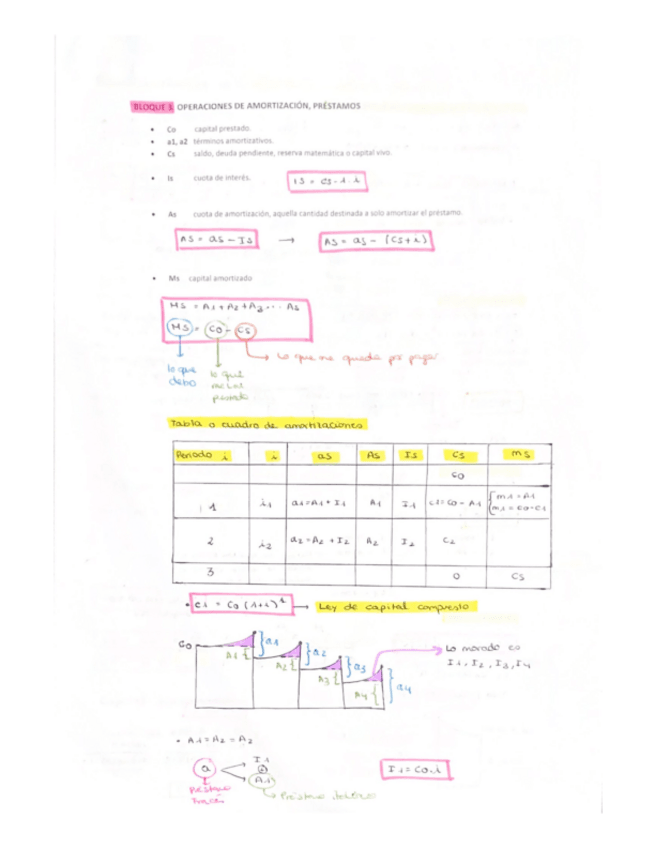 BLOQUE 3. OPERACIONES DE AMORTIZACIÓN, PRÉSTAMOS
• Co capital prestado.
• a1, a2 términos amortizativos.
• Cs saldo, deuda pendiente, reserva matemática o capital vivo.
• Is cuota de interés. IS = CS-1 · i
• As cuota de amortización, aquella cantidad destinada a solo amortizar el préstamo.
AS = as - IS → AS = as - (CS + i)
• Ms capital amortizado
MS = A1 + A2 + A3 ... As
MS = CO - CS
Lo que me queda por pagar
lo que debo
lo que
Tabla o cuadro de amortizaciones
Periodo i i as AS IS CS mS
CO
1 i1 a1=A1+I1 A1 I1 c1=CO-A1 { m1=A1 m1=CO-C1
2 i2 a2=A2+I2 A2 I2 C2
3 0 CS
• C1 = CO (1+i)¹ → Ley de capital compuesto
CO A1 { } a1 A2 { } a2 A3 { } a3 A4 { } a4
Lo morado es
I1, I2, I3, I4
• A1 = A2 = A3
I1
a
A1
I1 = CO·i
Préstamo
Préstamo